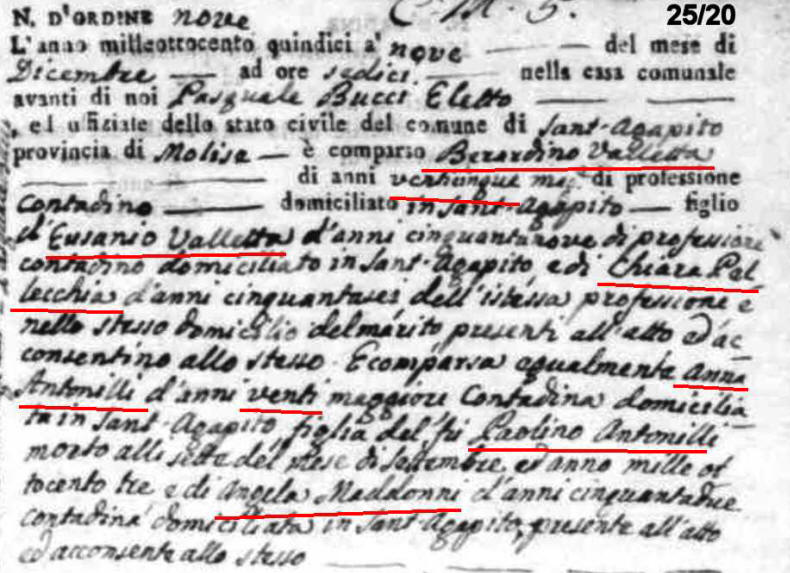 N. D'ORDINE nove C. M. 5. 25/20
L'anno milleottocento quindici a' nove del mese di
Dicembre ad ore sedici nella casa comunale
avanti di noi Pasquale Bucci Eletto
, ed uffiziale dello stato civile del comune di Sant-Agapito
provincia di Molise è comparso Berardino Valletta
di anni venticinque mag. di professione
Contadino domiciliato in Sant-Agapito figlio
di Eusanio Valletta d'anni cinquantanove di professione
contadino domiciliato in Sant-Agapito, e di Chiara Pel
lecchia d'anni cinquantasei dell'istessa professione e
nello stesso domicilio del marito, presenti all'atto ed ac
consentino allo stesso. E comparsa egualmente Anna
Antonilli d'anni venti maggiore Contadina domicilia
ta in Sant-Agapito figlia del fu Paolino Antonilli
morto alli sette del mese di Settembre ed anno mille ot
tocento tre e di Angela Maddonni d'anni cinquantadue
contadina domiciliata in Sant-Agapito, presente all'atto
ed acconsente allo stesso